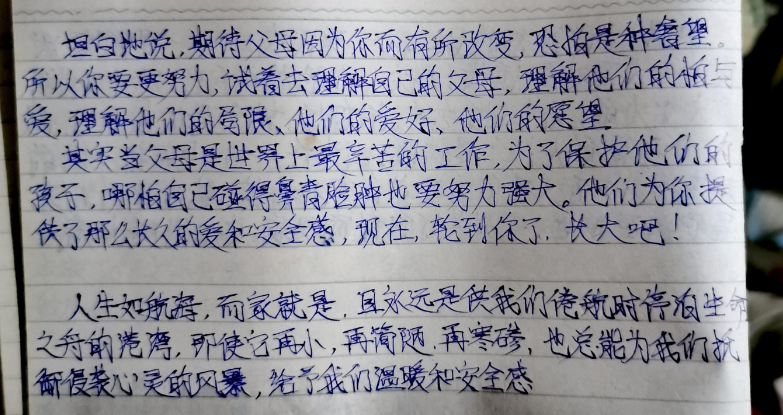 坦白地说,期待父母因为你而有所改变,恐怕是种奢望。
所以你要更努力,试着去理解自己的父母,理解他们的怕与
爱,理解他们的局限、他们的爱好、他们的愿望。
其实当父母是世界上最辛苦的工作,为了保护他们的
孩子,哪怕自己碰得鼻青脸肿也要努力强大。他们为你提
供了那么长久的爱和安全感,现在,轮到你了,长大吧!
人生如航海,而家就是,且永远是供我们倦航时停泊生命
之舟的港湾,即使它再小,再简陋,再寒碜,也总能为我们抵
御侵袭心灵的风暴,给予我们温暖和安全感